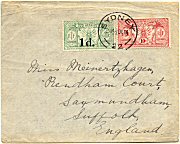 1d.
SYDNEY
22
Miss Meinertzhagen,
Rentham Court,
Saxmundham,
Suffolk
England